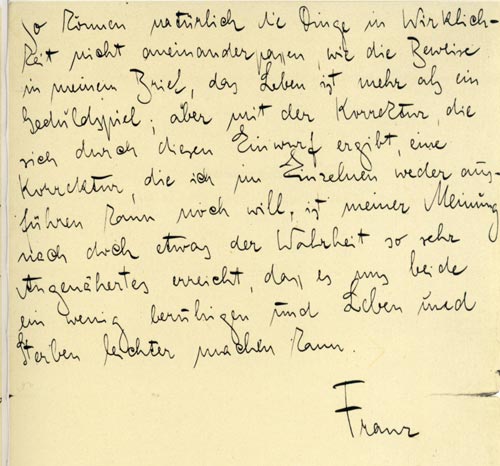 So können natürlich die Dinge in Wirklich-
keit nicht aneinanderpassen, wie die Beweise
in meinem Brief, das Leben ist mehr als ein
Geduldspiel; aber mit der Korrektur, die
sich durch diesen Einwurf ergibt, eine
Korrektur, die ich im Einzelnen weder aus-
führen kann noch will, ist meiner Meinung
nach doch etwas der Wahrheit so sehr
Angenähertes erreicht, dass es uns beide
ein wenig beruhigen und Leben und
Sterben leichter machen kann.
Franz